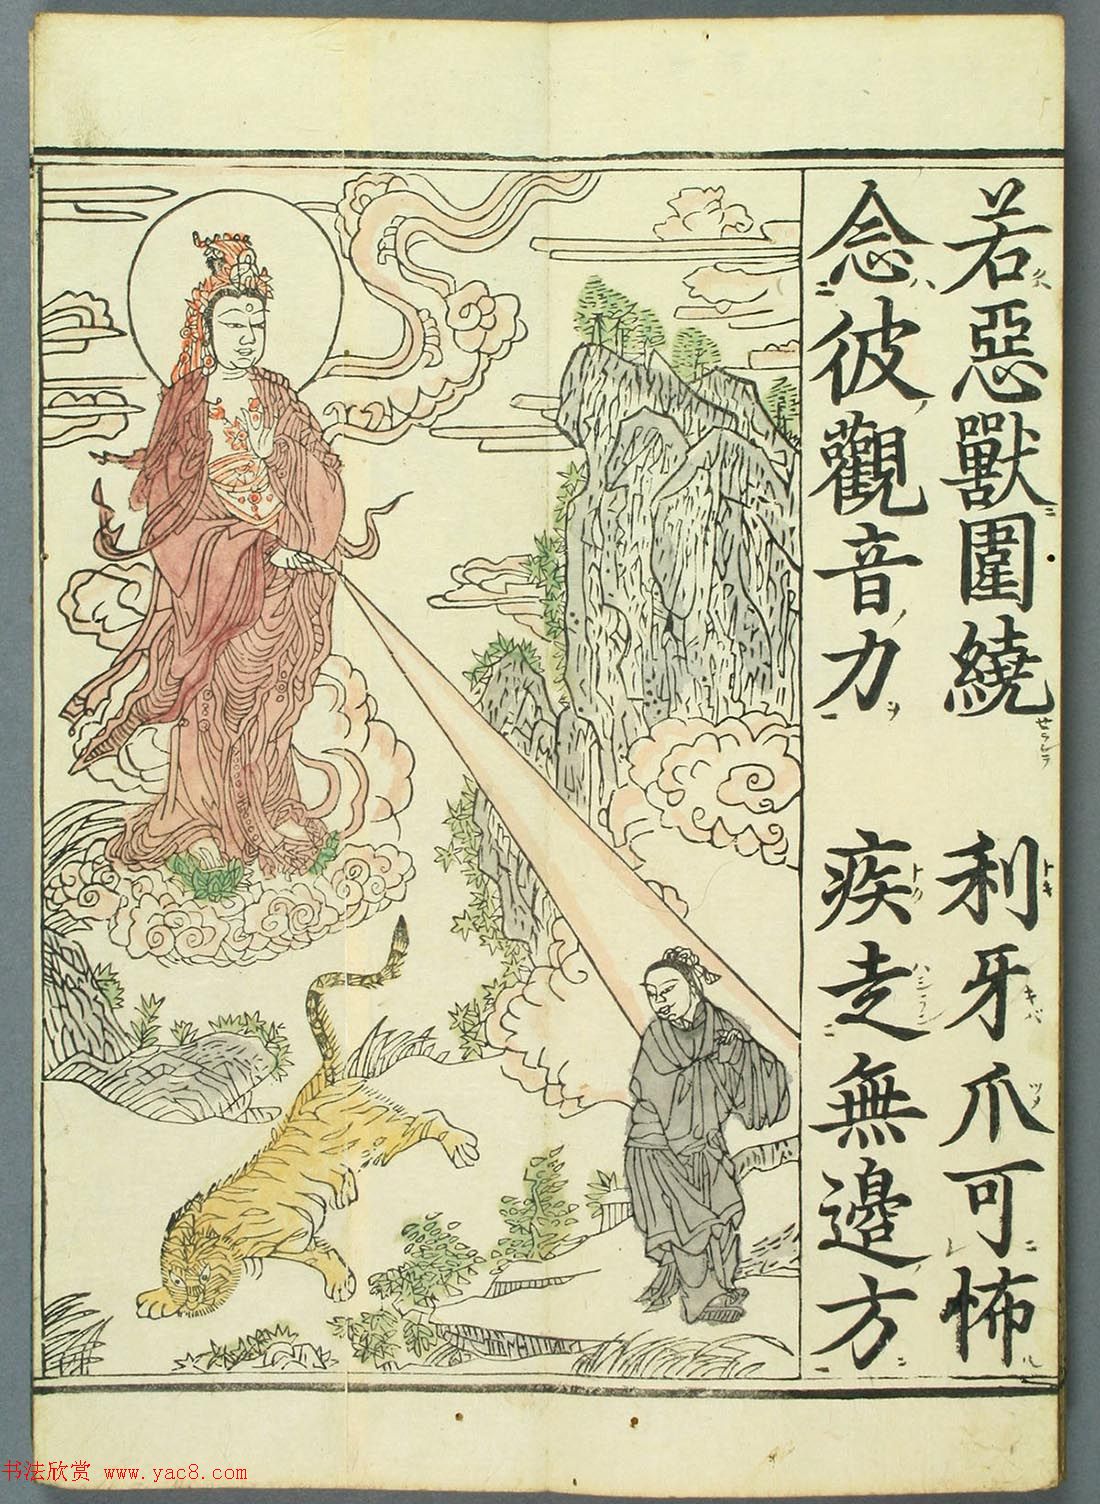 若惡獸圍繞 利牙爪可怖
念彼觀音力 疾走無邊方
书法欣赏 www.yac8.com